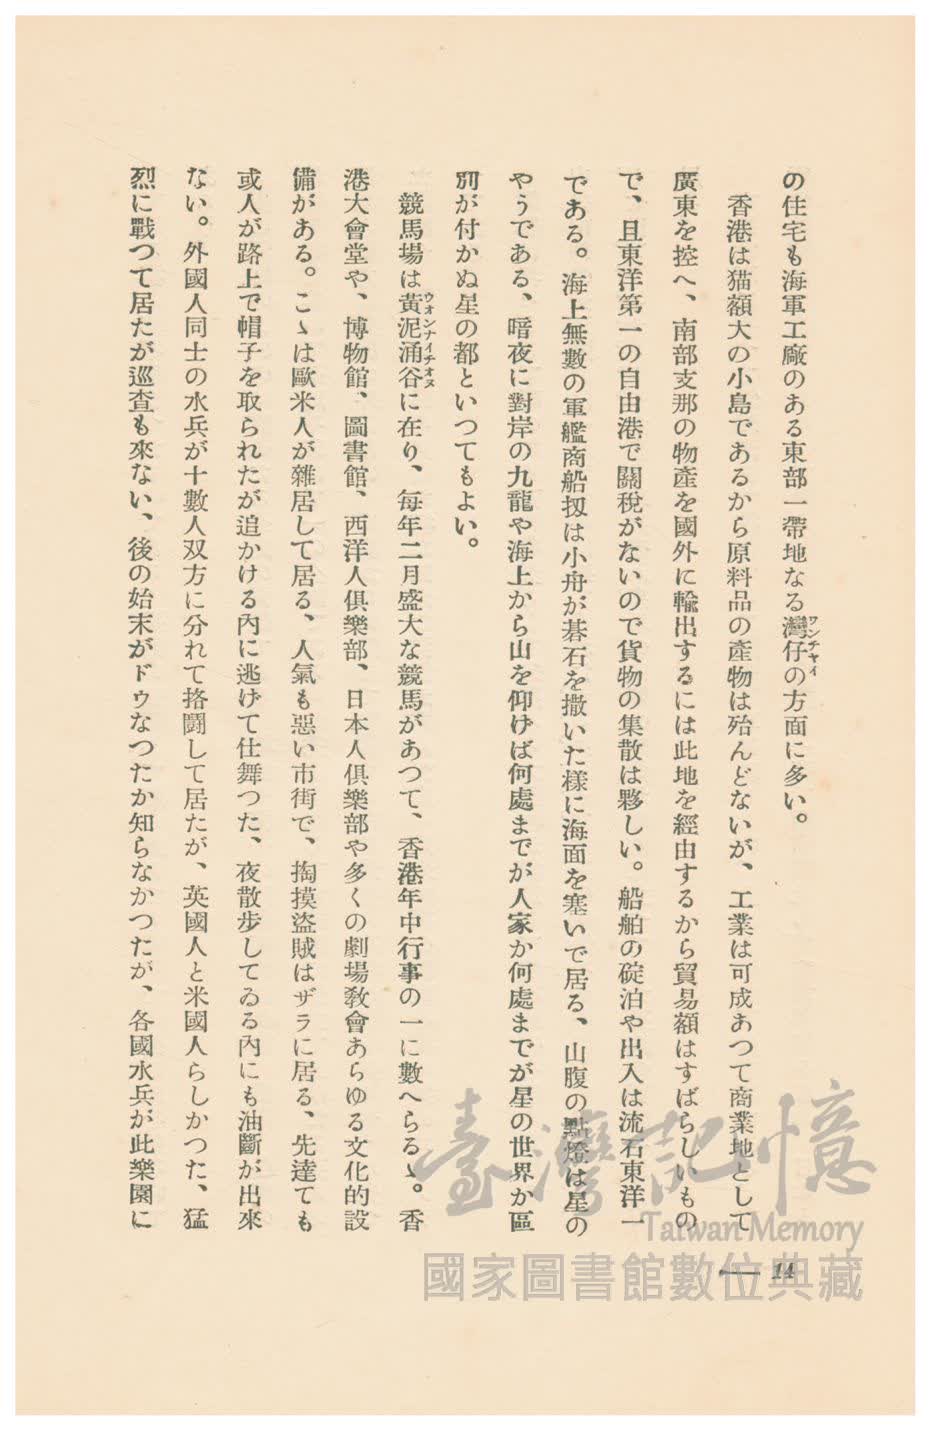 の住宅も海軍工廠のある東部一帶地なる灣仔の方面に多い。
ワンチヤイ
香港は猫額大の小島であるから原料品の產物は殆んどないが、工業は可成あつて商業地として
廣東を控へ、南部支那の物產を國外に輸出するには此地を經由するから貿易額はすばらしいもの
で、且東洋第一の自由港で關稅がないので貨物の集散は夥しい。船舶の碇泊や出入は流石東洋一
である。海上無數の軍艦商船扨は小舟が碁石を撒いた樣に海面を塞いで居る、山腹の點燈は星の
やうである、暗夜に對岸の九龍や海上から山を仰げば何處までが人家か何處までが星の世界か區
別が付かぬ星の都といつてもよい。
競馬場は黃泥涌谷に在り、每年二月盛大な競馬があつて、香港年中行事の一に數へらるゝ。香
ウオンナイチオヌ
港大會堂や、博物館、圖書館、西洋人俱樂部、日本人俱樂部や多くの劇場敎會あらゆる文化的設
備がある。こゝは歐米人が雜居して居る、人氣も惡い市街で、掏摸盜賊はザラに居る、先達ても
或人が路上で帽子を取られたが追かける內に逃げて仕舞つた、夜散步してゐる內にも油斷が出來
ない。外國人同士の水兵が十數人双方に分れて挌鬪して居たが、英國人と米國人らしかつた、猛
烈に戰つて居たが巡査も來ない、後の始末がドウなつたか知らなかつたが、各國水兵が此樂園に
— 14
臺灣記憶
Taiwan Memory
國家圖書館數位典藏